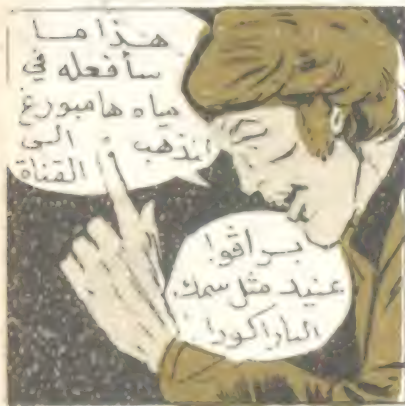 هذا ما
سأفعله في
مياه هامبورغ
لنذهب الى
القناة
برافو!
عنيد مثل سمك
الباراكورا!